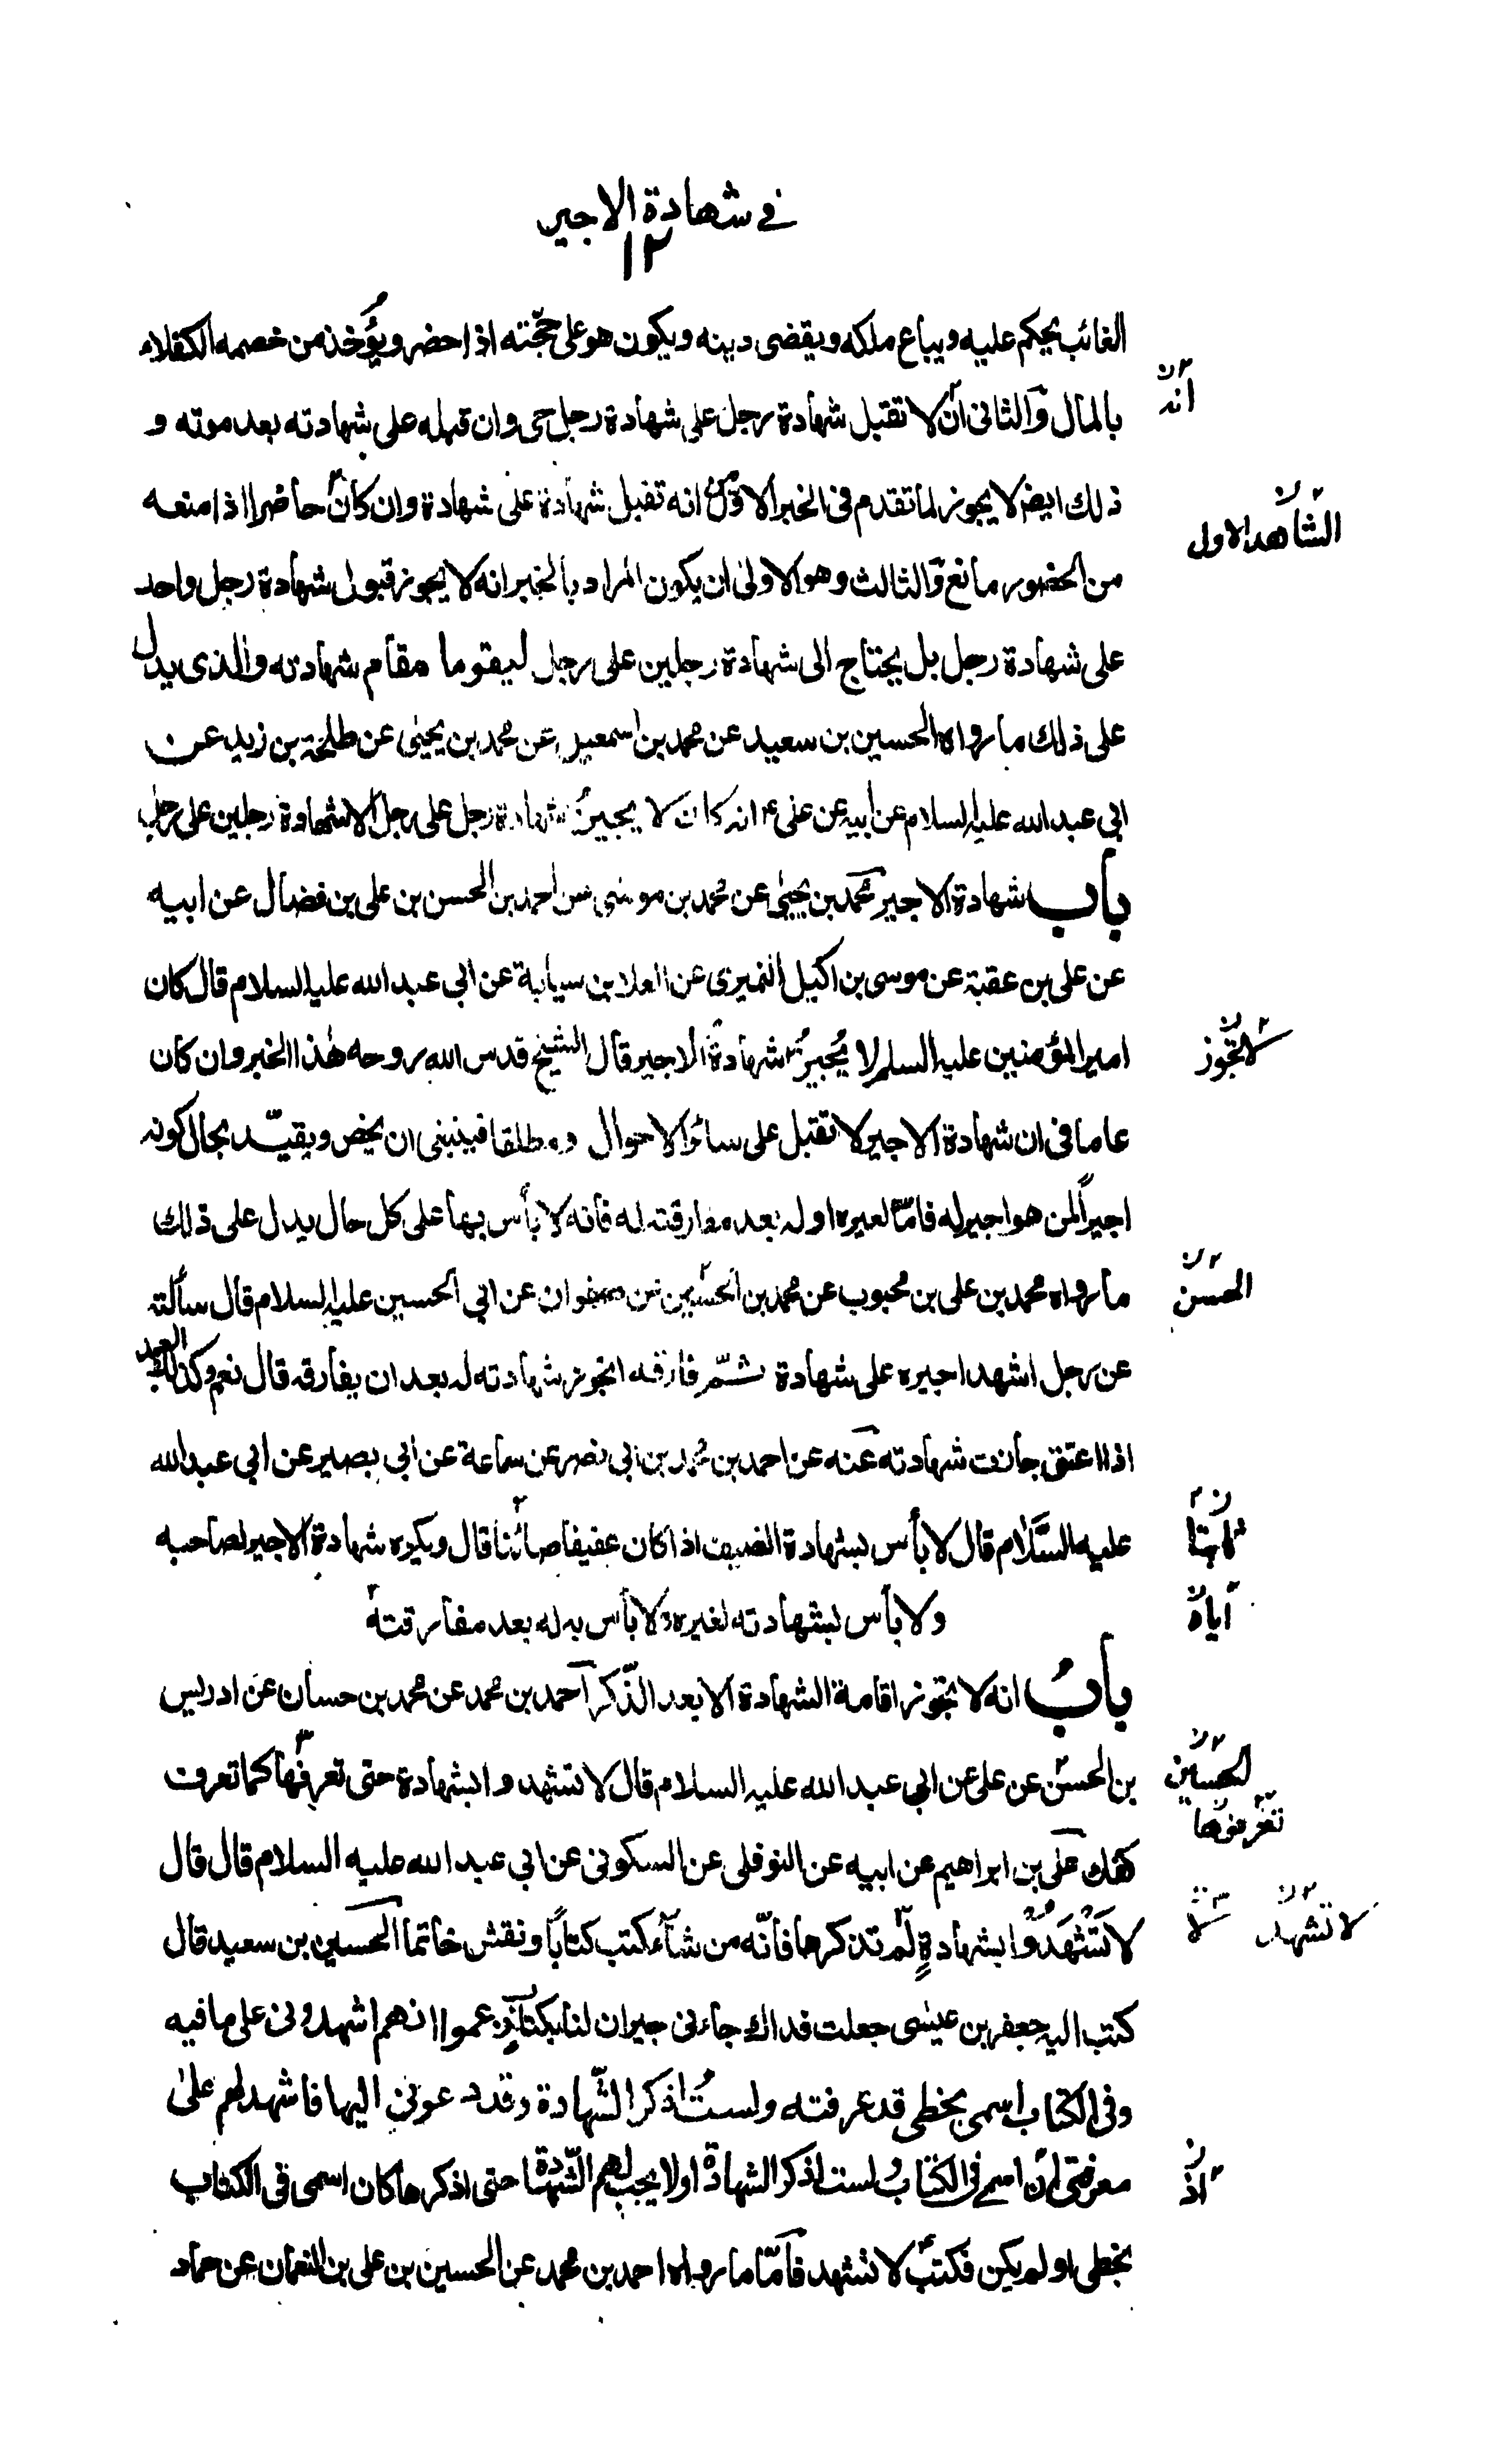 في شهادة الاجير
١٢
الغائب يحكم عليه ويباع ملكه ويقضى دينه ويكون هو على حجّته اذا حضر ويؤخذ من خصمه الكفلاء
بالمال والثاني ان لا تقبل شهادة رجل على شهادة رجل حي وان قبله على شهادته بعد موته و
انه
ذلك ايضا لا يجوز لما تقدم في الخبر الاول من انه تقبل شهادة على شهادة وان كان حاضرا اذا منعه
الشاهد الاول
من الحضور مانع والثالث وهو الاولى ان يكون المراد بالخبر انه لا يجوز قبول شهادة رجل واحد
على شهادة رجل بل يحتاج الى شهادة رجلين على رجل ليقوما مقام شهادته والذي يدل
على ذلك ما رواه الحسين بن سعيد عن محمد بن اسمعيل عن محمد بن يحيى عن طلحة بن زيد عن
ابي عبد الله عليه السلام عن ابيه عن علي ع انه كان لا يجيز شهادة رجل على رجل الا شهادة رجلين على رجل
باب شهادة الاجير محمد بن يحيى عن محمد بن موسى عن احمد بن الحسن بن علي بن فضال عن ابيه
عن علي بن عقبة عن موسى بن اكيل النميري عن العلا بن سيابة عن ابي عبد الله عليه السلام قال كان
امير المؤمنين عليه السلم لا يُجيزُ شهادة الاجير قال الشيخ قدس الله روحه هذا الخبر وان كان
لا تجوز
عاما في ان شهادة الاجير لا تقبل على سائر الاحوال ومطلقا فينبغي ان يخص ويقيّد بحال كونه
اجيراً لمن هو اجير له فامّا لغيره او له بعد مفارقته له فانه لا بأس بها على كل حال يدل على ذلك
ما رواه محمد بن علي بن محبوب عن محمد بن الحسين عن صفوان عن ابي الحسين عليه السلام قال سألته
الحسن
عن رجل اشهد اجيره على شهادة ثمّ فارقه اتجوز شهادته له بعد ان يفارقه قال نعم وكذلك العبد
اذا اعتق جازت شهادته عنه عن احمد بن محمد بن ابي نصر عن سماعة عن ابي بصير عن ابي عبد الله
عليه السَّلام قال لا بأس بشهادة الضيف اذا كان عفيفا صائنا قال ويكره شهادة الاجير لصاحبه
ولا بأس بشهادته لغيره ولا بأس به له بعد مفارقته
اياه
بابُ انه لا تجوز اقامة الشهادة الا بعد الذّكر احمد بن محمد عن محمد بن حسان عن ادريس
بن الحسن عن علي عن ابي عبد الله عليه السلام قال لا تشهدوا بشهادة حتى تعرفها كما تعرف
الحسين
تعرفوها
كفك علي بن ابراهيم عن ابيه عن النوفلي عن السكوني عن ابي عبد الله عليه السلام قال قال
لا تَشْهَدُوا بشهادةٍ لم تذكرها فانّه من شآء كتب كتابًا ونقش خاتما الحسين بن سعيد قال
لا تشهد لا
كتب اليه جعفر بن عيسى جعلت فداك جاءني جيران لنا بكتاب زعموا انهم اشهدوني على ما فيه
وفي الكتاب اسمي بخطي قد عرفته ولستُ اذكر الشّهادة وقد دعوني اليها فاشهد لهم على
معرفتي ان اسمي في الكتاب لست اذكر الشهادة او لا يجب لهم الشّهادة حتى اذكرها كان اسمي في الكتاب
بخطي او لم يكن فكتب لا تشهد فامّا ما رواه احمد بن محمد عن الحسين بن علي بن النعمان عن حماد